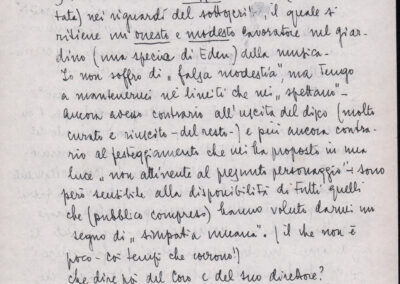 tata) nei riguardi del sottoscritto, il quale si
ritiene un onesto e modesto lavoratore nel giar-
dino (una specie di Eden) della musica.
Io non soffro di "falsa modestia", ma tengo
a mantenermi ne' limiti che mi "spettano" -
Ancora avverso contrario all'uscita del disco (molto
curato e riuscito - del resto -) e più ancora contra-
rio al festeggiamento che mi ha proposto in una
luce "non attinente al presunto personaggio" - sono
però sensibile alla disponibilità di tutti quelli
che (pubblico compreso) hanno voluto darmi un
segno di "simpatia umana". (il che non è
poco - coi tempi che corrono!)
Che dire poi del Coro e del suo direttore?